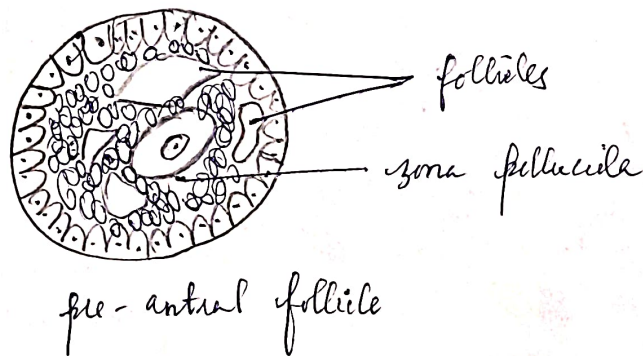 follicles
zona pellucida
pre-antral follicle